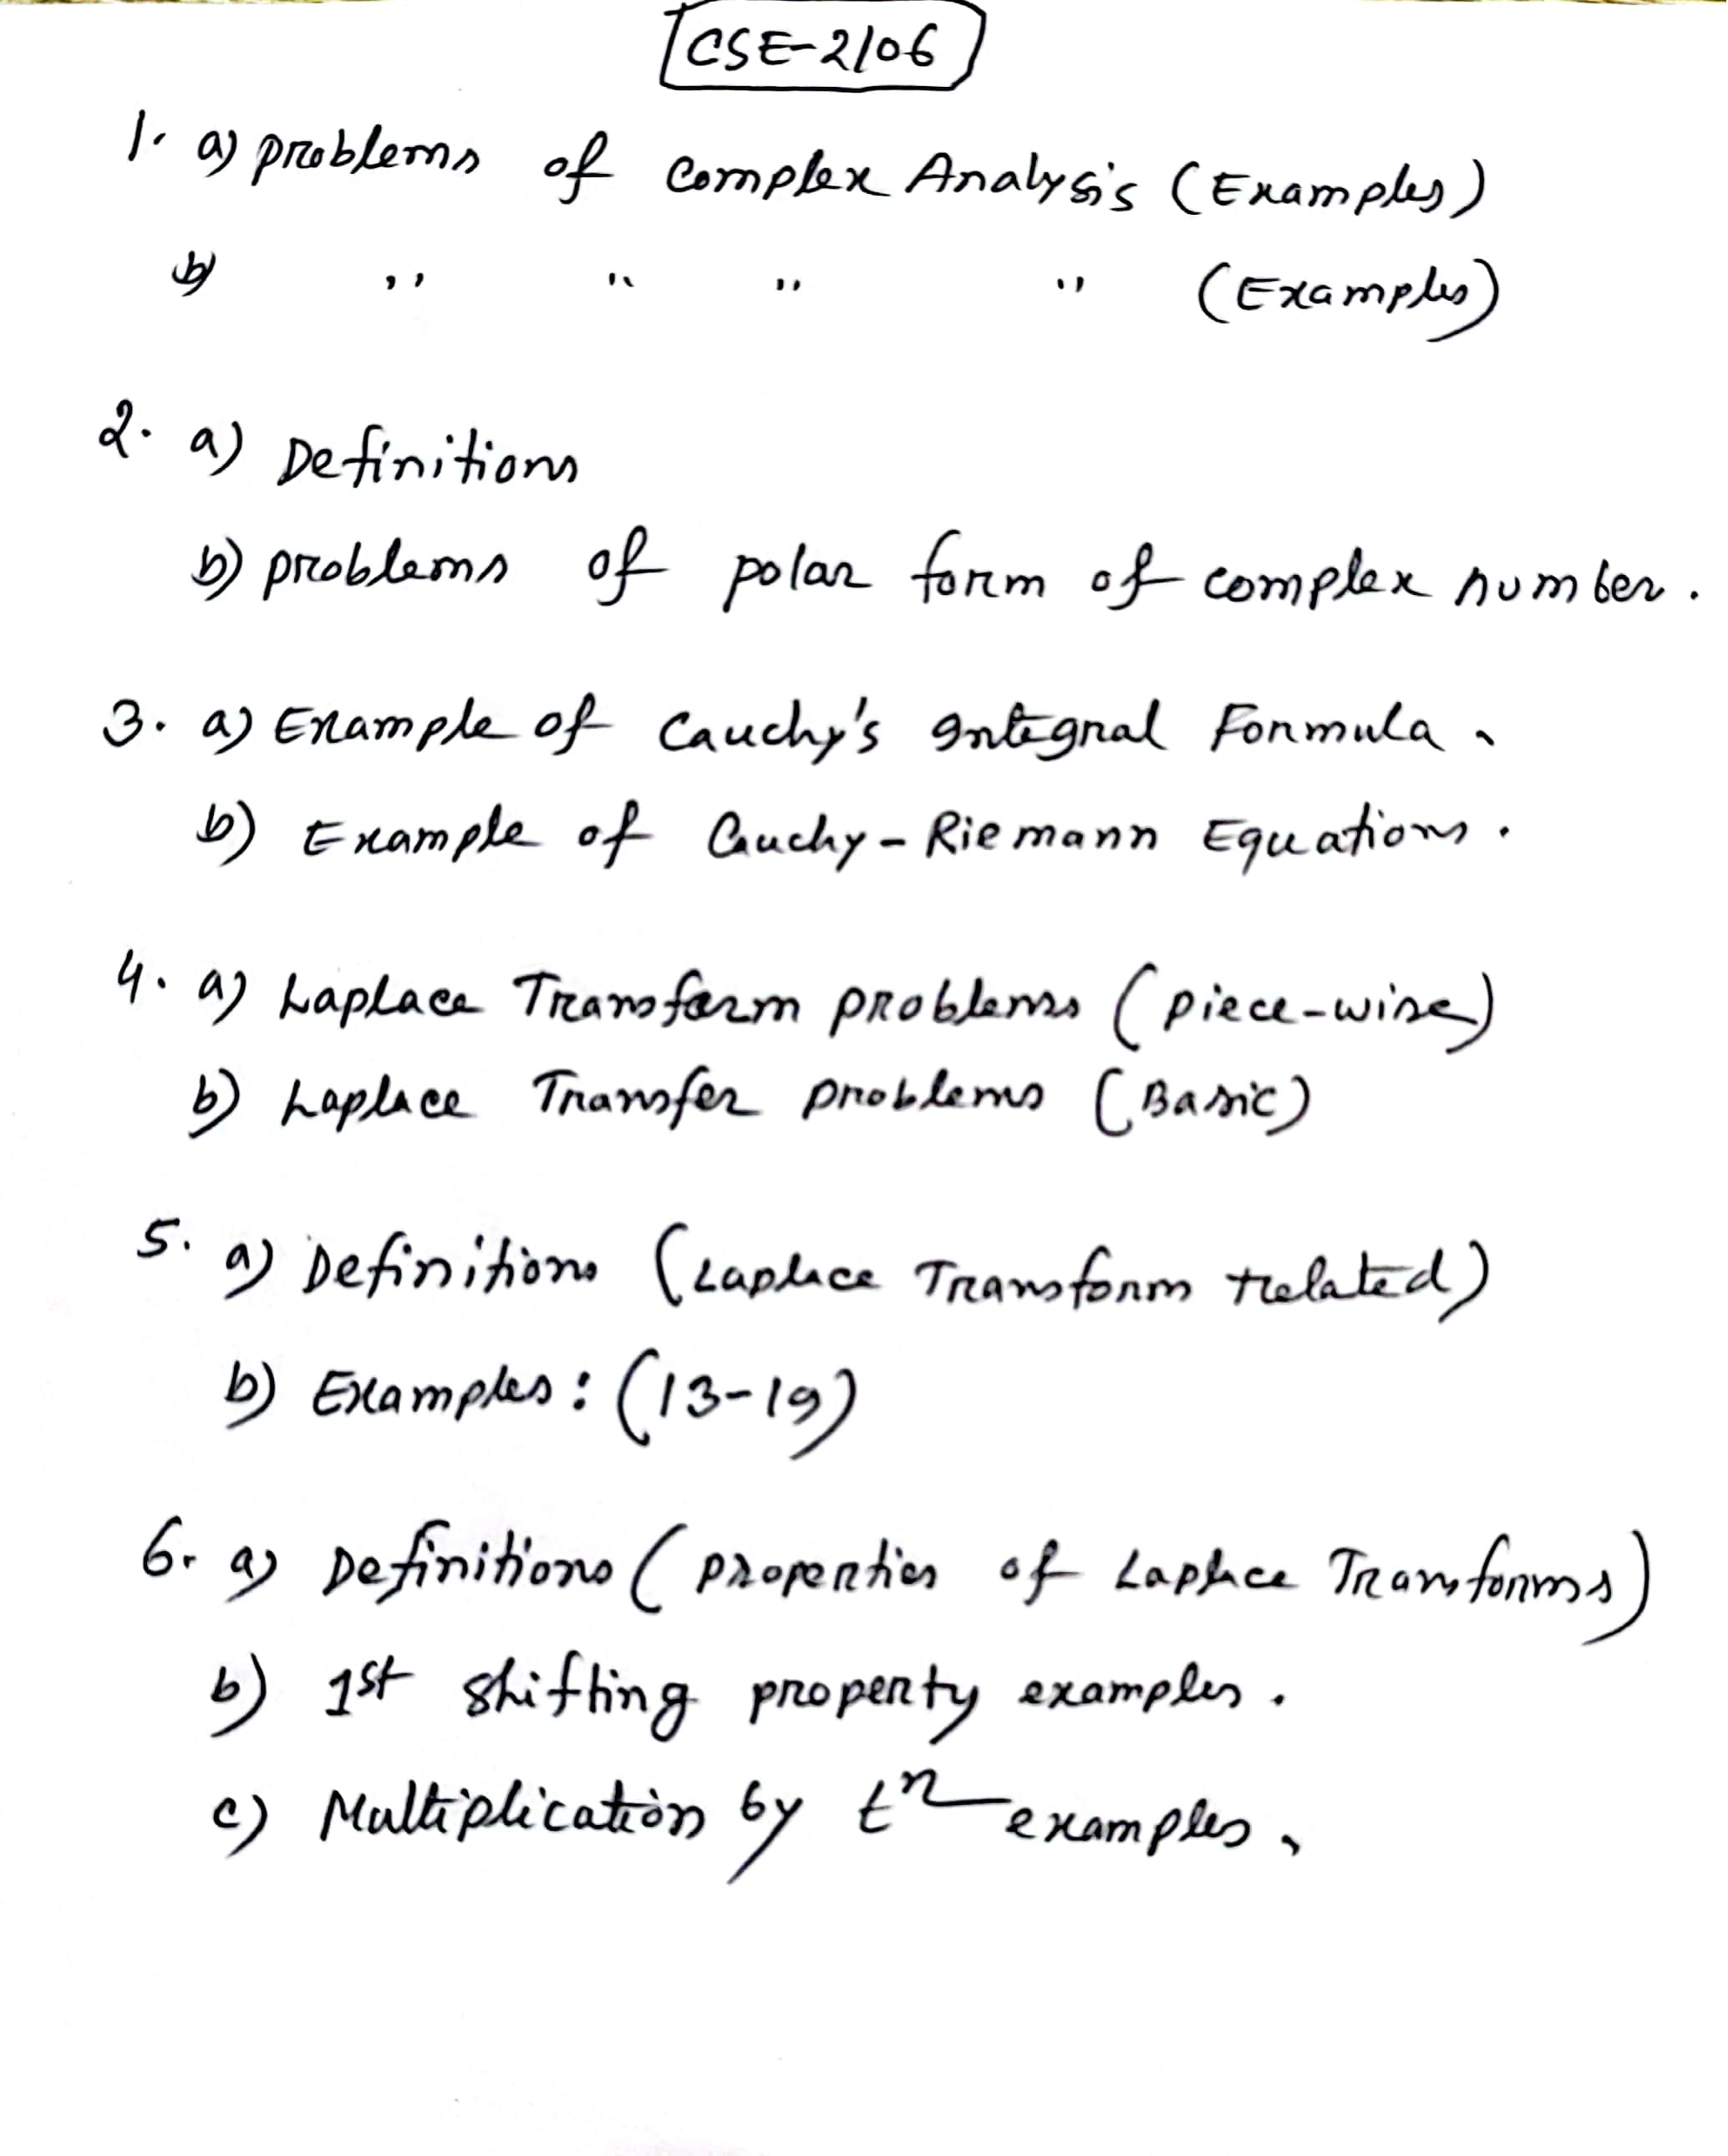 CSE-2106
1. a) problems of Complex Analysis (Examples)
b) " " " " (Examples)
2. a) Definitions
b) problems of polar form of complex number.
3. a) Example of Cauchy's Integral Formula.
b) Example of Cauchy-Riemann Equations.
4. a) Laplace Transform problems (piece-wise)
b) Laplace Transfer problems (Basic)
5. a) Definitions (Laplace Transform related)
b) Examples: (13-19)
6. a) Definitions (properties of Laplace Transforms)
b) 1st shifting property examples.
c) Multiplication by tⁿ examples.